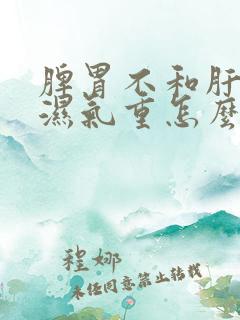 脾胃不和肝
濕氣重怎麼
程娜
未经同意禁止转载